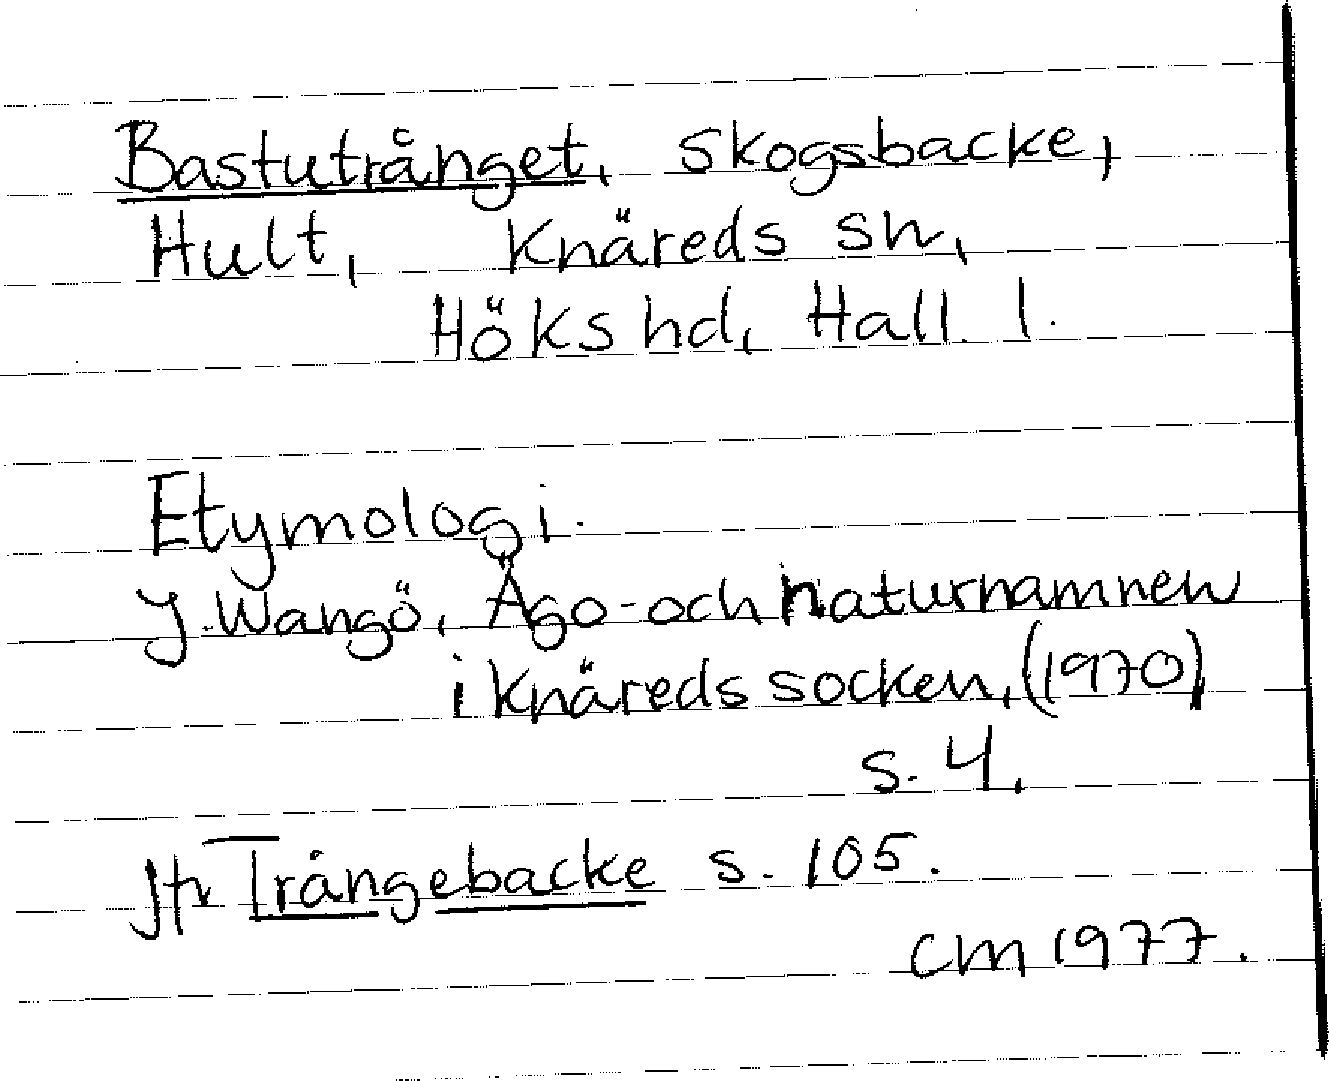 Bastutrånget, skogsbacke,
Hult, Knäreds sn,
Höks hd, Hall. l.
Etymologi.
J. Wangö, Ägo- och naturnamnen
i Knäreds socken, (1970)
s. 4.
Jfr Trångebacke s. 105.
CM 1977.